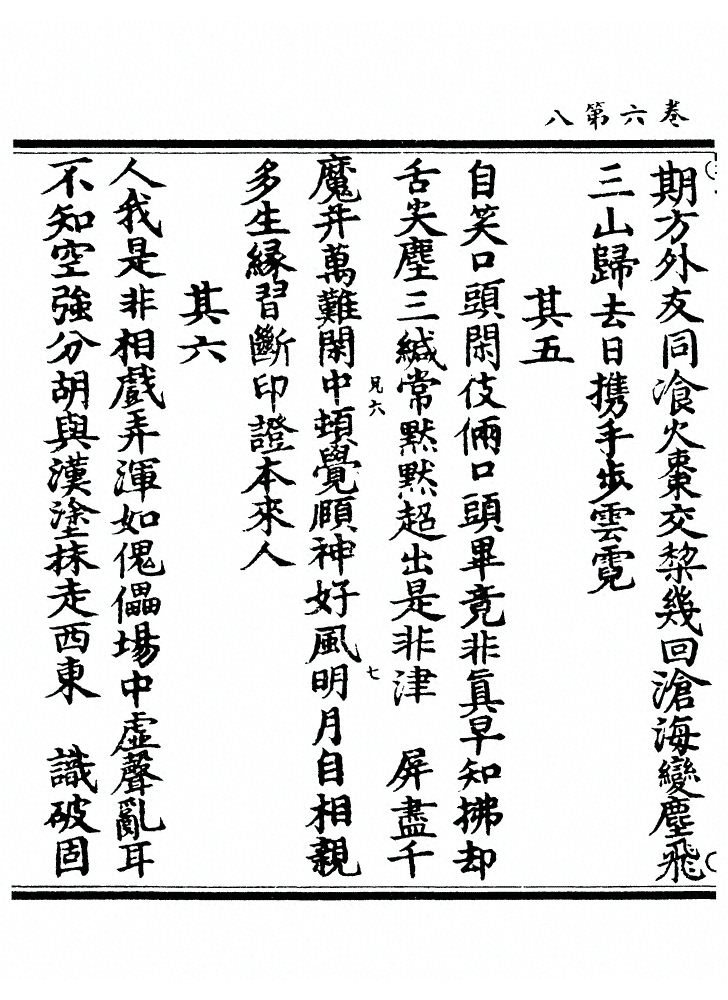 卷六第八
期方外友同飡火棗交棃幾回滄海變塵飛
三山歸去日携手步雲霓
其五
自笑口頭閑伎倆口頭畢竟非眞早知拂却
舌尖塵三緘常默默超出是非津　屏盡千
魔幷萬難閑中頓覺頤神好風明月自相親
兄六
七
多生緣習斷印證本來人
其六
人我是非相戲弄渾如傀儡場中虛聲亂耳
不知空強分胡與漢塗抹走西東　識破固